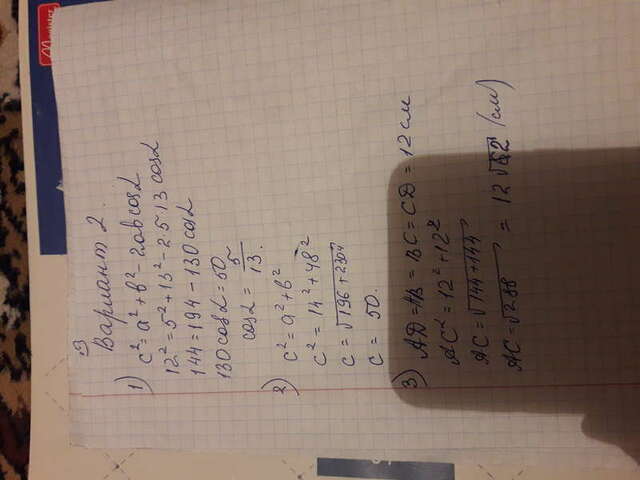 Вариант 2.
1) c² = a² + b² - 2ab cosα
12² = 5² + 13² - 2·5·13 cosα
144 = 194 - 130 cosα
130 cosα = 50
cosα = 5/13.
2) c² = a² + b²
c² = 14² + 48²
c = √196 + 2304
c = 50.
3) AD = AB = BC = CD = 12 см
AC² = 12² + 12²
AC = √144 + 144
AC = √288 = 12√2 (см)